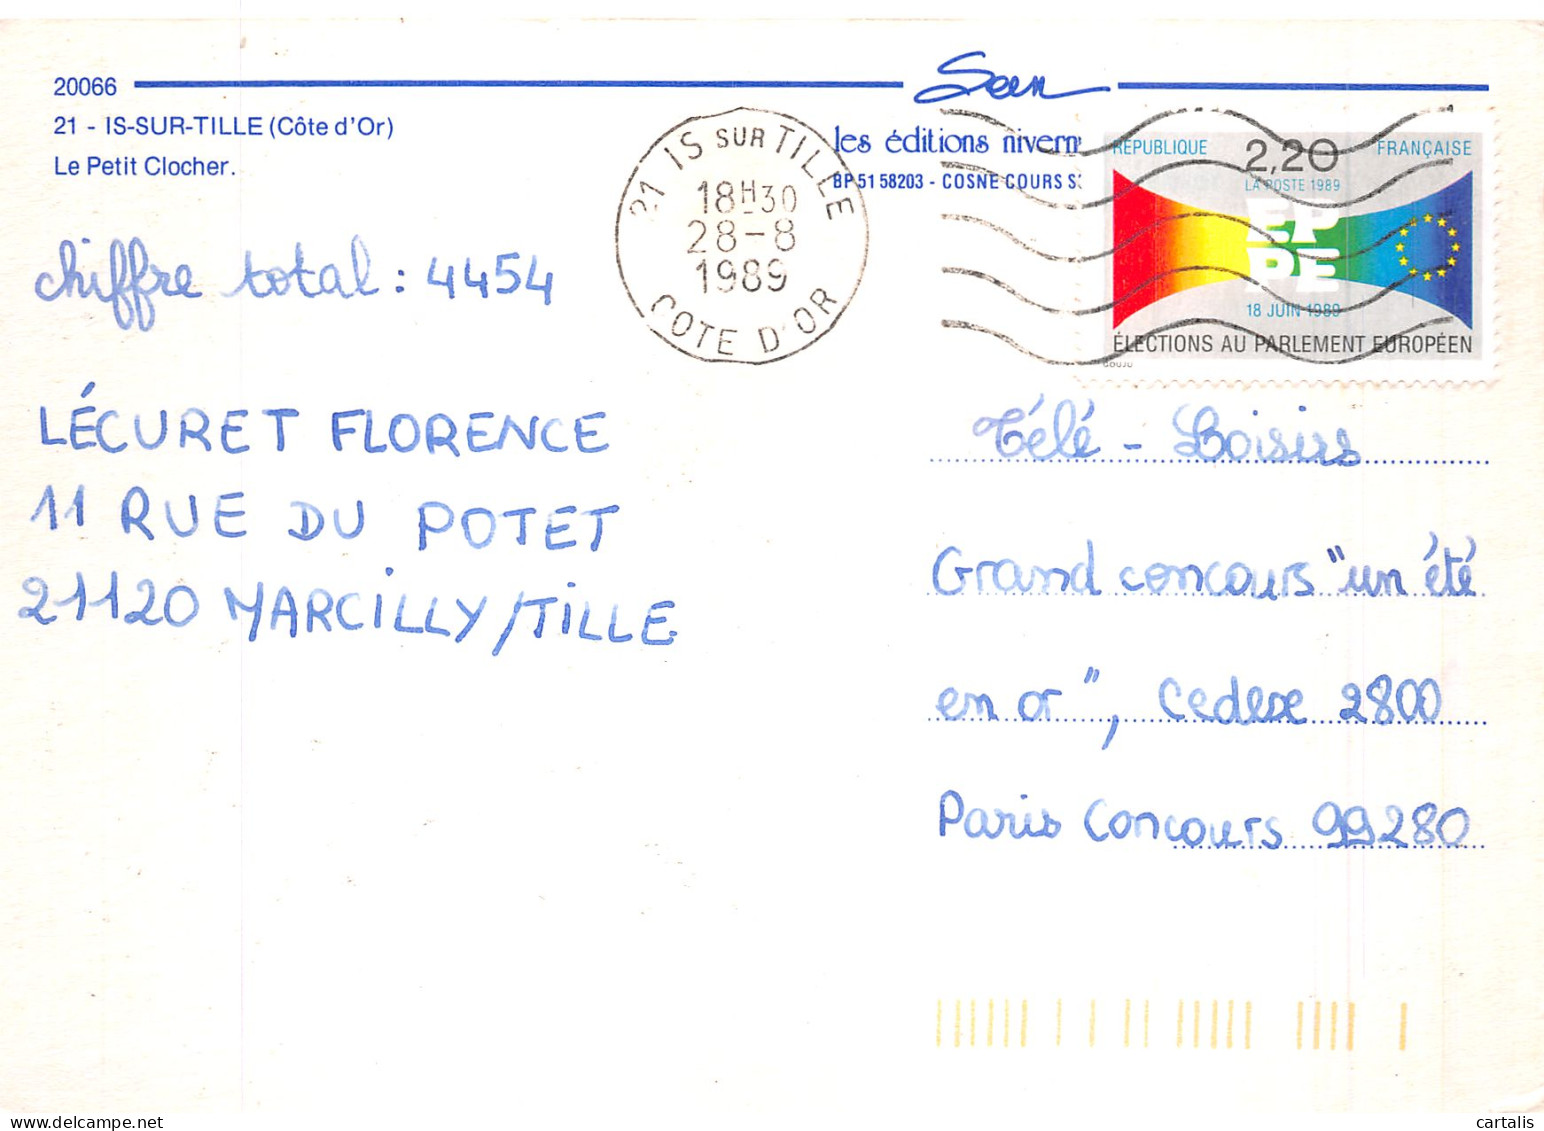 20066
21 - IS-SUR-TILLE (Côte d'Or)
Le Petit Clocher.
les éditions nivern
BP 51 58203 - COSNE COURS S
21 IS SUR TILLE
18H30
28-8
1989
COTE D'OR
RÉPUBLIQUE 2,20 FRANÇAISE
LA POSTE 1989
EP
PE
18 JUIN 1989
ÉLECTIONS AU PARLEMENT EUROPÉEN
GOUJU
chiffre total : 4454
LÉCURET FLORENCE
11 RUE DU POTET
21120 MARCILLY/TILLE
Télé - Loisirs
Grand concours "un été
en or", Cedex 2800
Paris Concours 99280
cartalis